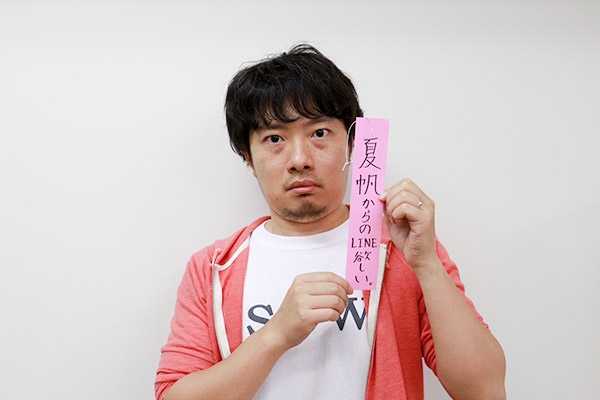 夏帆からのLINE欲しい。
S W